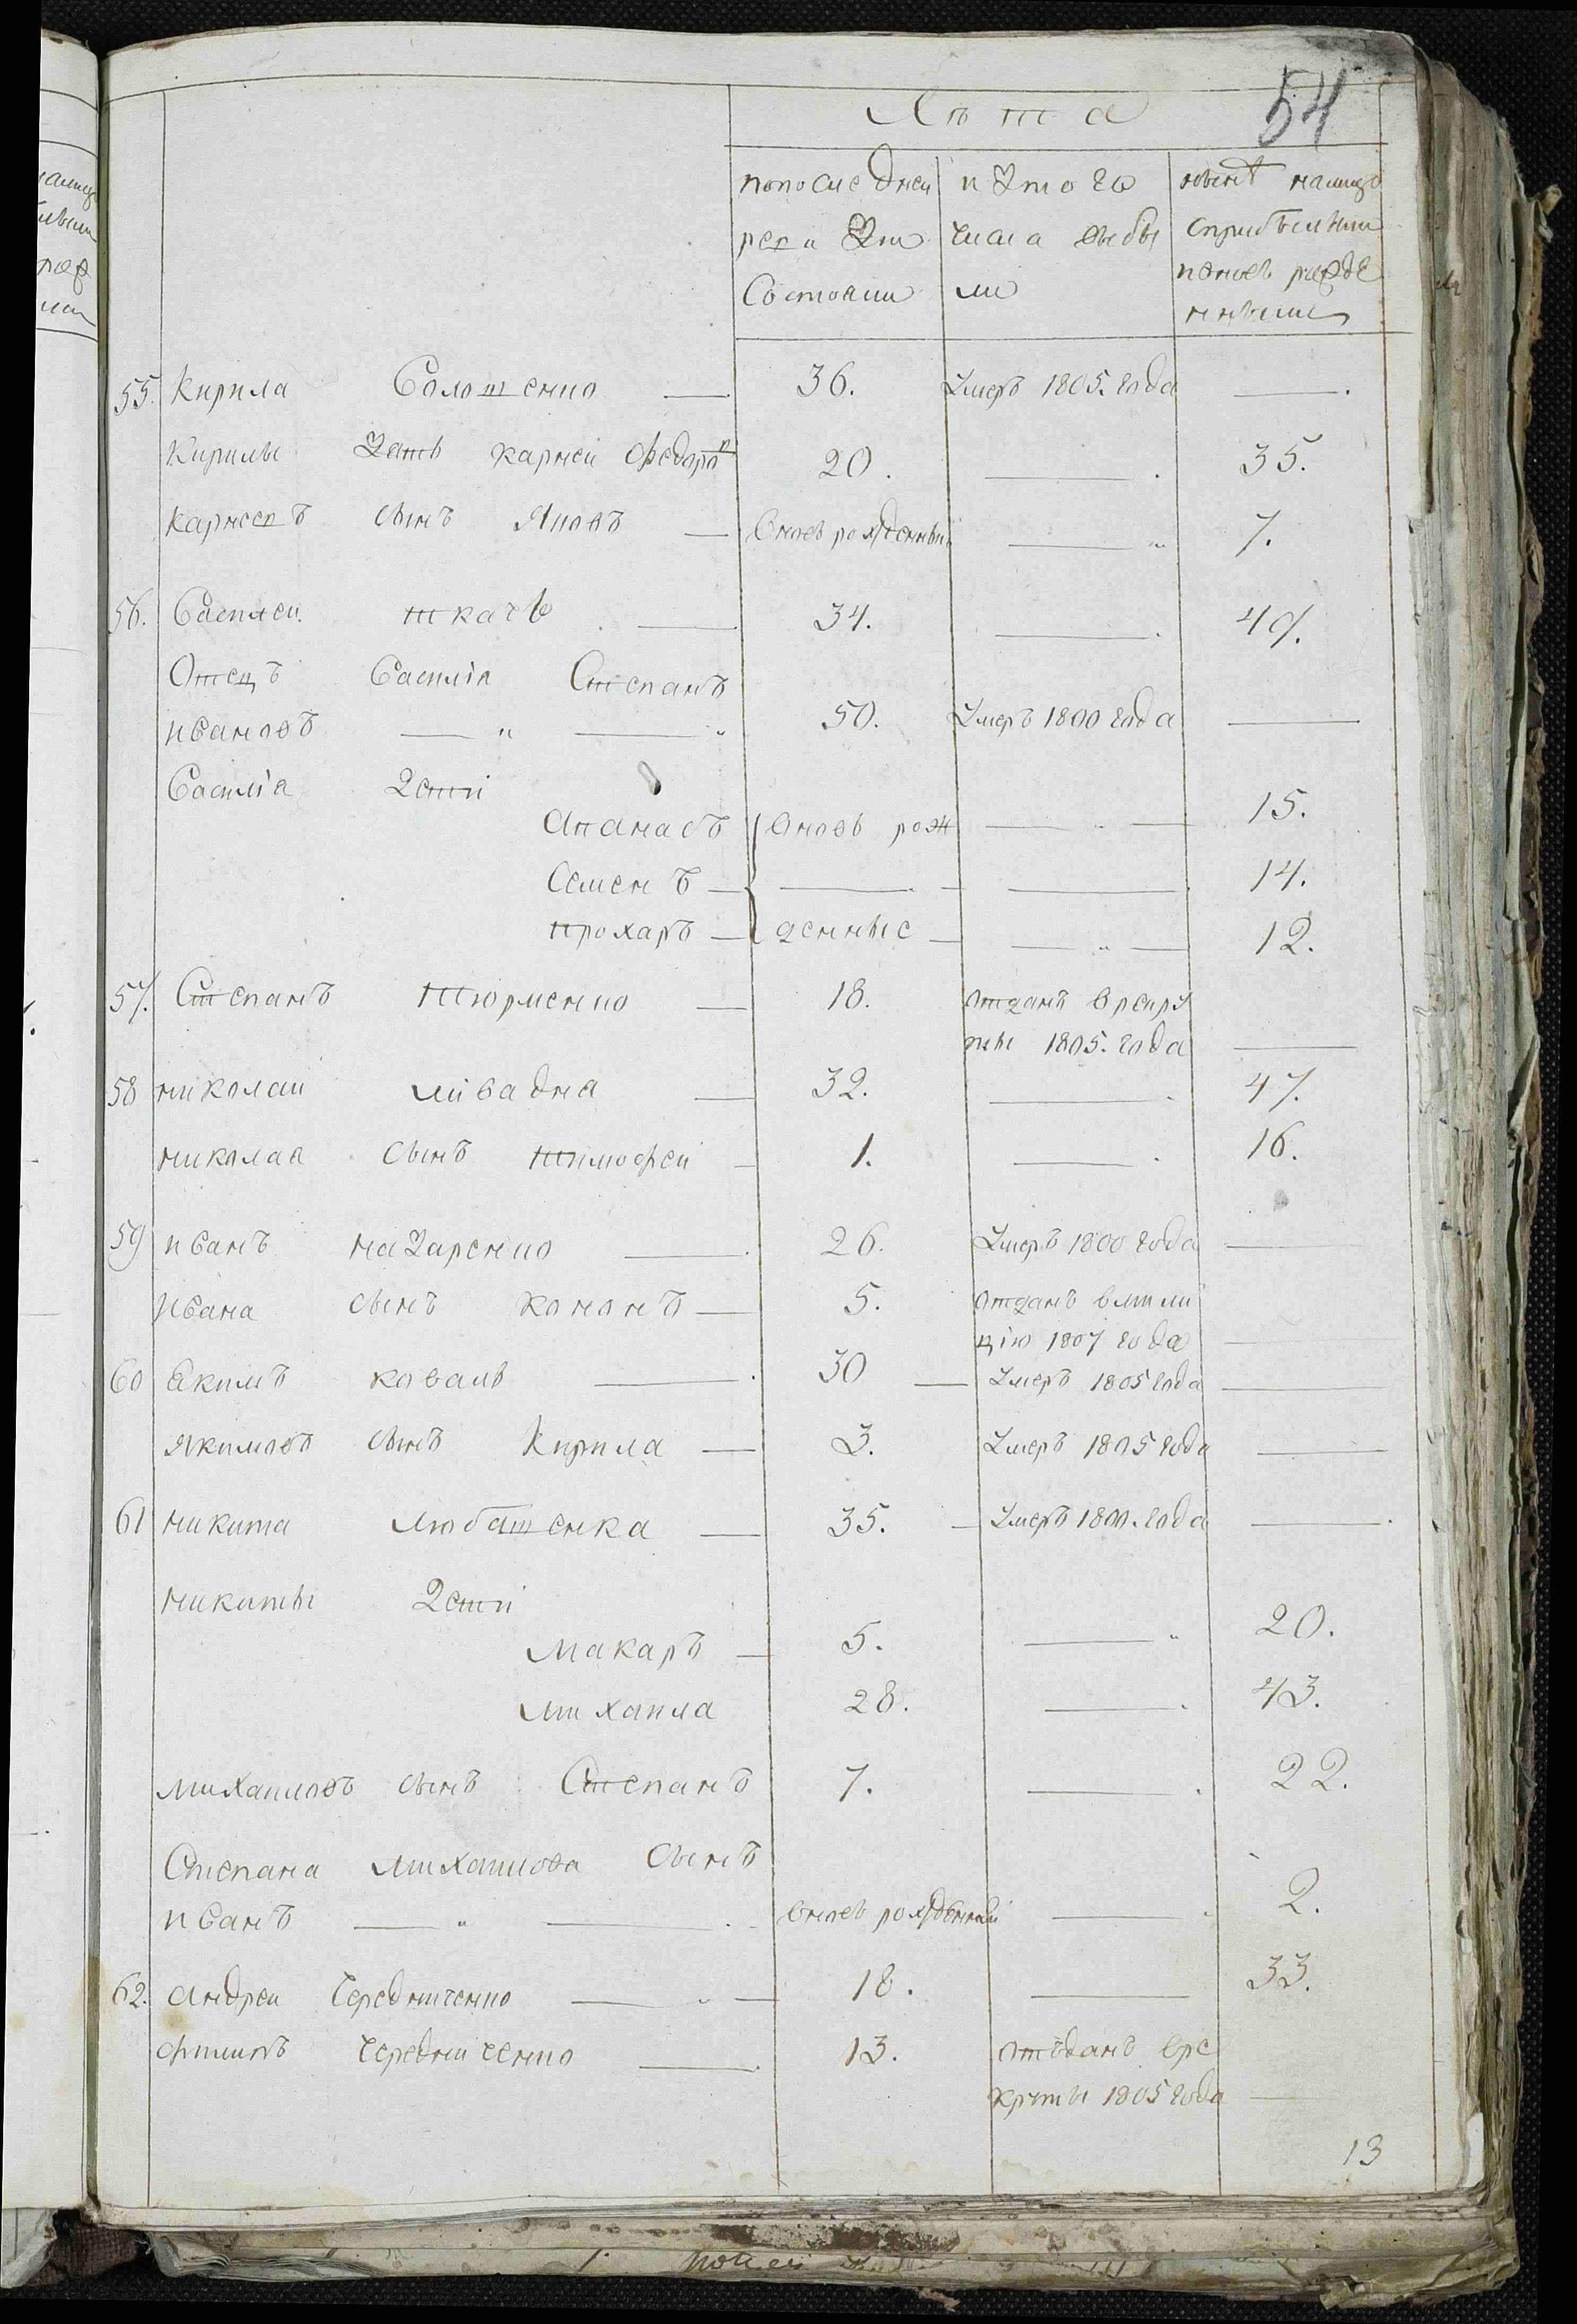 54
Лѣта
попоследней изтого ныне налицо
ревизіи числа выбы сприбылыми
Состояли ли ивновь рожде
нными
55. Кирила Солошенко — 36. Умеръ 1805. года —
Кирилы зять карней Федоровъ 20. — 35.
карнеевъ сынъ Яковъ — вновь рожденный — 7.
56. Василеи ткачь — 34. — 49.
Отецъ Василія Степанъ
ивановъ — " — 50. Умеръ 1800 года —
Василія дети
Апанасъ вновь рож — 15.
Семенъ — — — 14.
прохаръ — денные — — 12.
57. Степанъ Тюрменко — 18. отданъ врекру
ты 1805. года —
58 николаи ливадна — 32. — 47.
николая сынъ тимофеи — 1. — 16.
59 иванъ назаренко — 26. Умеръ 1800 года —
ивана сынъ кононъ — 5. отданъ вмили
цію 1807 года —
60 Якимъ коваль — 30 — Умеръ 1805 года —
якимовъ сынъ Кирила — 3. Умеръ 1805 года —
61 никита Любашенка — 35. — Умеръ 1800. года —
никиты дети
макаръ — 5. — 20.
михаила 28. — 43.
михаиловъ сынъ Степанъ 7. — 22.
Степана михаилова сынъ
иванъ — " — вновь рожденный — 2.
62. андреи Чередниченко — 18. — 33.
филипъ Чередниченко — 13. отъданъ вре
круты 1805 года —
13